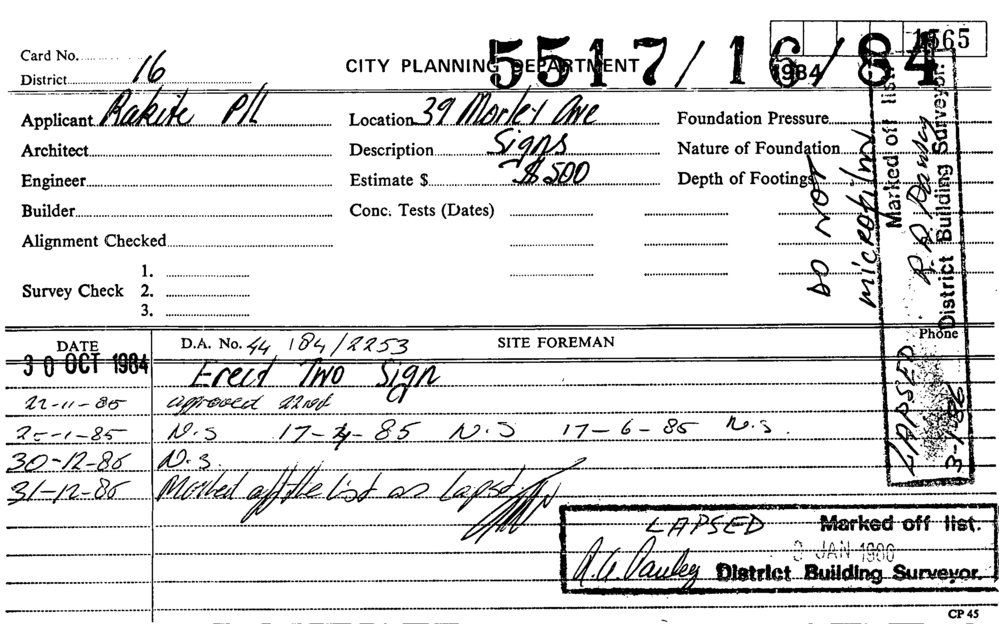 1565
5517/16/84
Card No.
District 16
CITY PLANNING DEPARTMENT
1984
Applicant Rakite P/L
Location 39 Morley Ave
Foundation Pressure
Architect
Description Signs
Nature of Foundation
Engineer
Estimate $ $500
Depth of Footings
Builder
Conc. Tests (Dates)
Alignment Checked
Survey Check
1.
2.
3.
DO NOT
microfilm
LAPSED
Marked off list.
3-1-86
District Building Surveyor.
DATE
D.A. No. 44 184/2253
SITE FOREMAN
Phone
30 OCT 1984
Erect Two Sign
approved
N.S 17-4-85 N.S 17-6-85 N.S.
30-12-85 N.S.
31-12-85 Marked off the list as lapsed
LAPSED Marked off list.
3 JAN 1986
District Building Surveyor.
CP 45